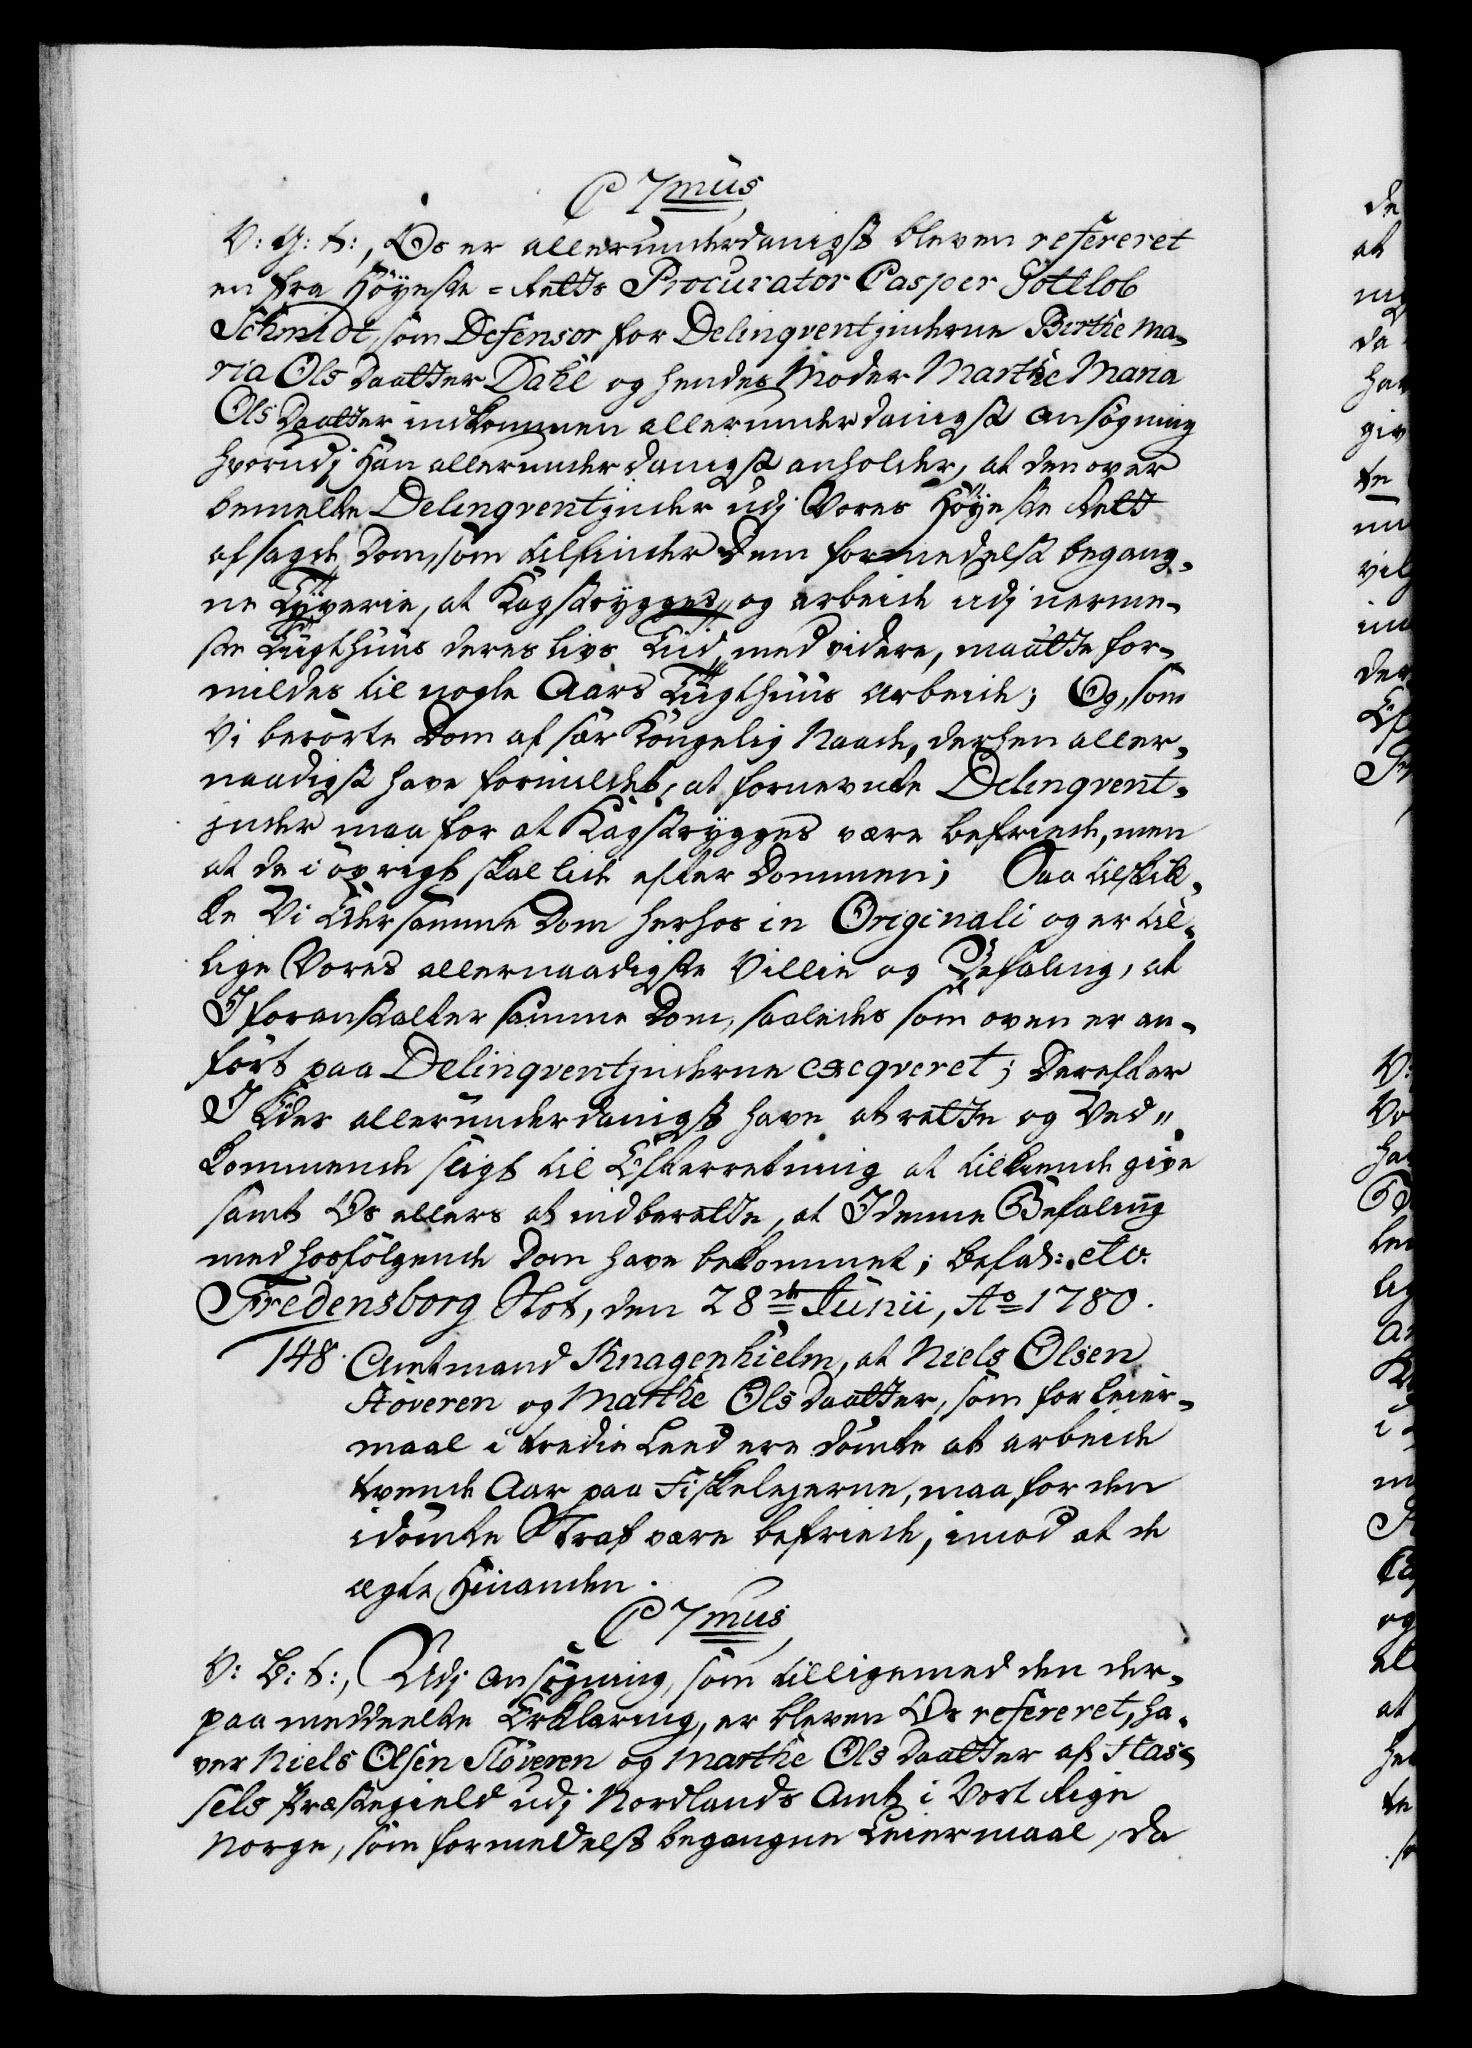 C 7mus
V: G: T:, Os er allerunderdanigst bleven refereret
en fra Höyeste-Retts Procurator Casper Gottlob
Schmidt, som Defensor for Delinqventjnderne Birthe Ma-
ria Ols Daatter Dahl og hendes Moder Marthe Maria
Ols Daatter indkommen allerunderdanigst Ansögning
hvorudj Han allerunderdanigst anholder, at den over
bemelte Delinqventjnder udj Vores Höyeste Rett
afsagde Dom, som tilfinder Dem formedelst begang-
ne Tyverie, at Kagstrygges, og arbeide udj nerme-
ste Tugthuus deres Livs Tiid, med videre, maatte for-
mildes til nogle Aars Tugthuus Arbeide; Og, som
Vi berörte Dom af sær Kongelig Naade, derhen aller-
naadigst have formildet, at fornevnte Delinqvent-
jnder maa for at Kagstrygges være befriede, men
at de i övrigt skal lide efter Dommen; Saa tilskik-
ke Vi Eder samme Dom herhos in Originali og er til-
lige Vores allernaadigste Villie og Befaling, at
I foranstalter samme Dom, saaledes som oven er an-
fört paa Delinqventjnderne exeqveret; Derefter
I Eder allerunderdanigst have at rette og Ved-
kommende sligt til Efterretning at tilkiende give
samt Os allers at indberette, at I denne Befaling
med hosfölgende Dom have bekommet; Befal: etc.
Fredensborg Slot, den 28de Junii, Ao 1780.
148. Amtmand Knagenhielm, at Niels Olsen
Stöveren og Marthe Ols Daatter, som for Leier-
maal i tredie Leed ere dömte at arbeide
tvende Aar paa Fiskelejerne, maa for den
idömte Straf være befriede, imod at de
ægte Hinanden.
C 7mus
V: B: T:, Udj Ansögning, som tilligemed den der-
paa meddeelte Erklaring, er bleven Os refereret, ha-
ver Niels Olsen Stöveren og Marthe Ols Daatter af Has-
sels Præstegield udj Nordlands Amt i Vort Rige
Norge, som formedelst begangne Leiermaal, da